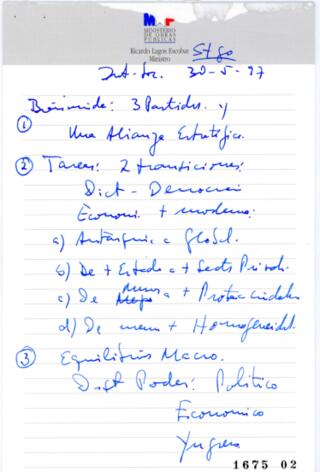 MINISTERIO
DE OBRAS
PUBLICAS
Ricardo Lagos Escobar
Ministro
Stgo
30-5-97
Bienvenida: 3 Partidos. y
①
Una Alianza Estratégica.
② Tareas: 2 transiciones:
Dict - Democracia
Econom. + moderna:
a) Autarquía a Global.
b) De + Estado a + Sect. Privado.
c) De menos a + Protec. Ciudadana
d) De menos + Homogeneidad.
③ Equilibrios Macro.
Dist Poder: Político
Económico
Ingreso
1675 02